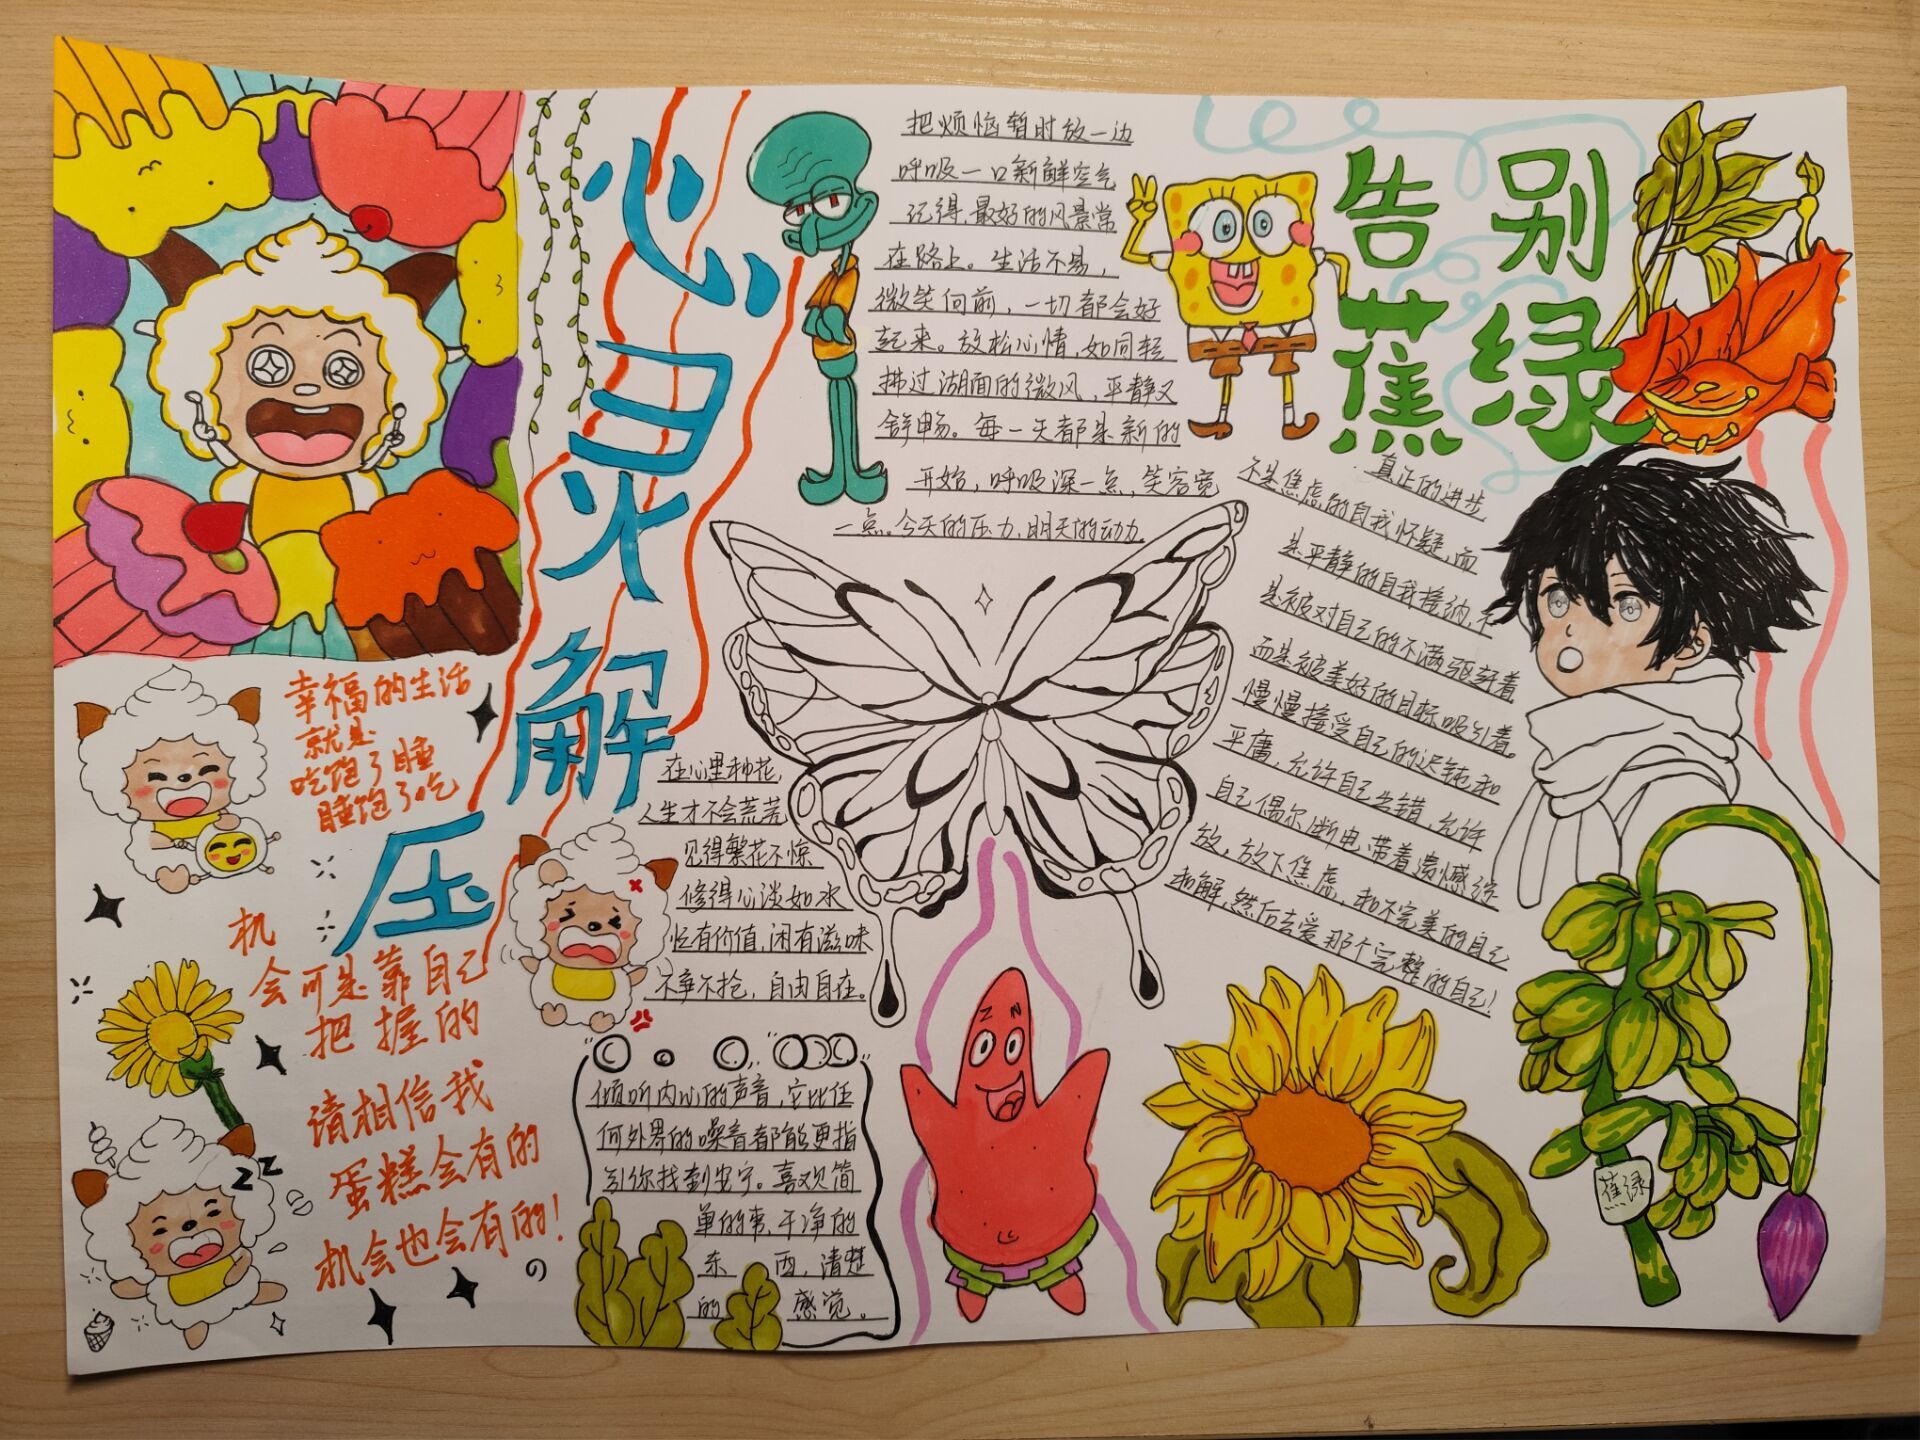 心灵解压
告别
蕉绿
把烦恼暂时放一边
呼吸一口新鲜空气
记得,最好的风景常
在路上。生活不易,
微笑向前,一切都会好
起来。放松心情,如同轻
拂过湖面的微风,平静又
舒畅。每一天都是新的
开始,呼吸深一点,笑容宽
一点。今天的压力,明天的动力
真正的进步
不是焦虑的自我怀疑,而
是平静的自我接纳,不
是被对自己的不满驱赶着
而是被美好的目标吸引着。
慢慢接受自己的迟钝和
平庸,允许自己出错,允许
自己偶尔断电,带着遗憾
放,放下焦虑,和不完美的自己
和解,然后去爱那个完整的自己!
幸福的生活
就是
吃饱了睡
睡饱了吃
机
会可是靠自己
把握的
请相信我
蛋糕会有的
机会也会有的!
在心里种花,
人生才不会荒芜
见得繁花不惊
修得心淡如水
忙有价值,闲有滋味
不争不抢,自由自在。
倾听内心的声音,它比任
何外界的噪音都能更指
引你找到安宁。喜欢简
单的事,干净的
东西,清楚
的感觉。
蕉绿
zz
z N